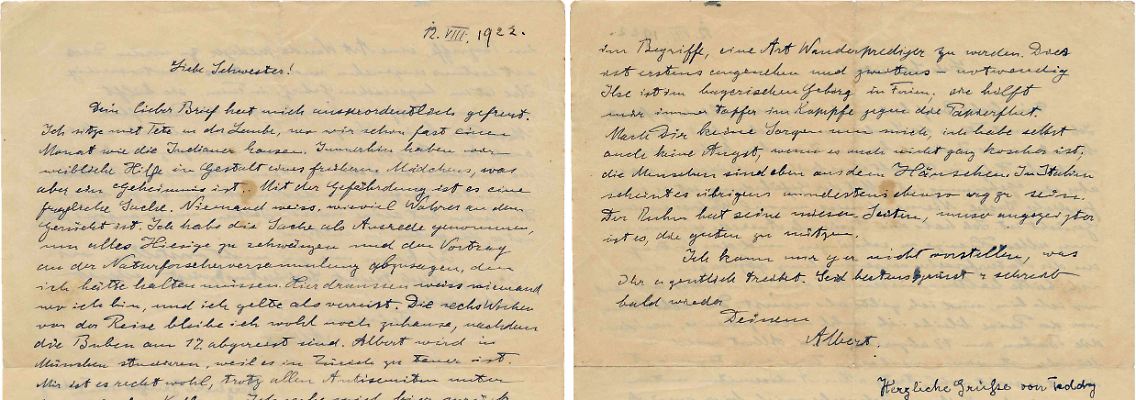 12. VIII. 1922.
Liebe Schwester!
Dein lieber Brief hat mich ausserordentlich gefreut.
Ich sitze mit Tete in der Laube, wo wir schon fast einen
Monat wie die Indianer hausen. Immerhin haben wir
weibliche Hilfe in Gestalt eines früheren Mädchens, was
aber ein Geheimnis ist. Mit der Gefährdung ist es eine
fragliche Sache. Niemand weiss, wieviel Wahres an dem
Gerücht ist. Ich habe die Sache als Ausrede genommen,
um alles Hiesige zu schwänzen und den Vortrag
an der Naturforscherversammlung abzusagen, den
ich hätte halten müssen. Hier draussen weiss niemand
wo ich bin, und ich gelte als verreist. Die sechs Wochen
vor der Reise bleibe ich wohl noch zuhause, nachdem
die Buben am 17. abgereist sind. Albert wird in
München studieren, weil es in Zürich zu teuer ist.
Mir ist es recht wohl, trotz allen Antisemiten unter
im Begriffe, eine Art Wanderprediger zu werden. Dies
ist erstens angenehm und zweitens – notwendig
Ilse ist im bayerischen Gebirg in Ferien. sie hilft
mir immer tapfer im Kampfe gegen die Papierflut.
Mach Dir keine Sorgen um mich, ich habe selbst
auch keine Angst, wenn es auch nicht ganz koscher ist,
die Menschen sind eben aus dem Häuschen. In Italien
scheint es übrigens mindestens ebenso arg zu sein.
Der Ruhm hat seine miesen Seiten, umso angezeigter
ist es, die guten zu nützen.
Ich kann mir gar nicht vorstellen, was
Ihr eigentlich treibt. Seid bestens gegrüsst & schreib
bald wieder
Deinem
Albert.
Herzliche Grüße von Teddy